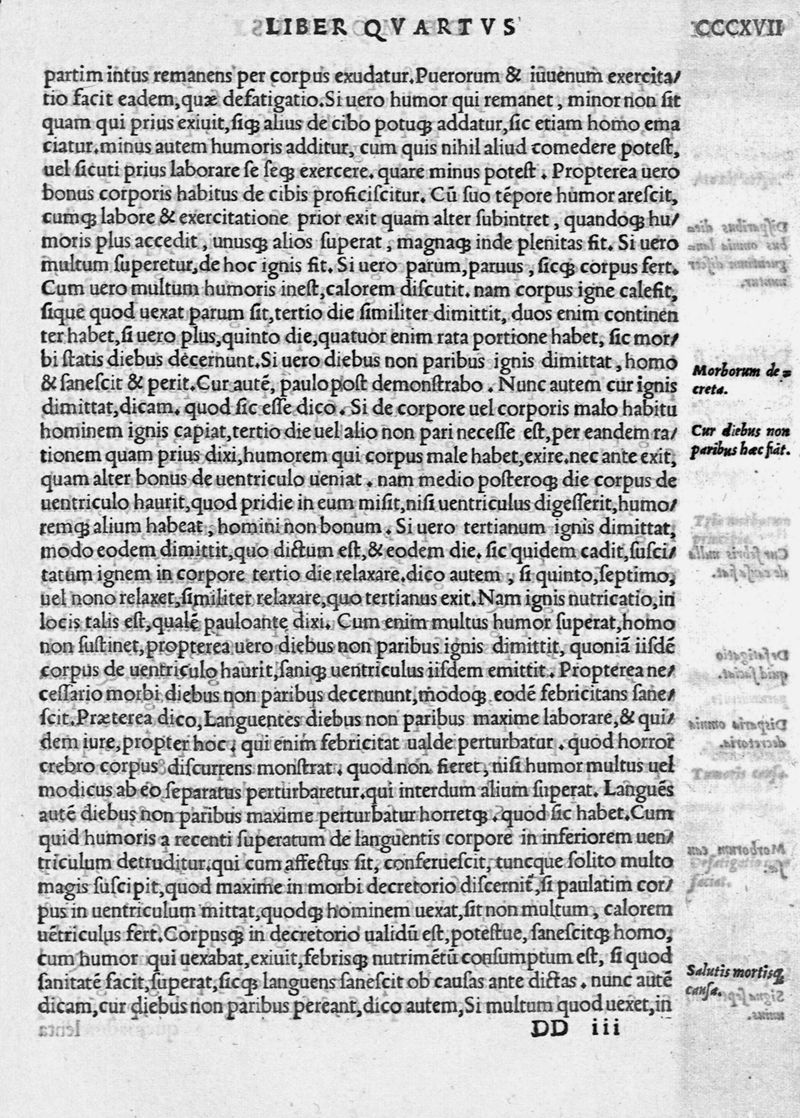 LIBER QVARTVS
CCCXVII
partim intus remanens per corpus exudatur.Puerorum & iuuenum exercita/
tio facit eadem,quæ defatigatio.Si uero humor qui remanet, minor non ſit
quam qui prius exiuit,ſiqꝫ alius de cibo potuqꝫ addatur,ſic etiam homo ema
ciatur.minus autem humoris additur, cum quis nihil aliud comedere poteſt,
uel ſicuti prius laborare ſe ſeqꝫ exercere. quare minus poteſt. Propterea uero
bonus corporis habitus de cibis proficiſcitur. Cū ſuo tēpore humor areſcit,
cumqꝫ labore & exercitatione prior exit quam alter ſubintret, quandoqꝫ hu/
moris plus accedit, unusqꝫ alios ſuperat, magnaqꝫ inde plenitas fit. Si uero
multum ſuperetur,de hoc ignis fit. Si uero parum,paruus, ſicqꝫ corpus fert.
Cum uero multum humoris ineſt,calorem diſcutit. nam corpus igne calefit,
ſique quod uexat parum ſit,tertio die ſimiliter dimittit, duos enim continen
ter habet,ſi uero plus,quinto die,quatuor enim rata portione habet, ſic mor/
bi ſtatis diebus decernunt.Si uero diebus non paribus ignis dimittat, homo
& ſaneſcit & perit.Cur autē, paulo poſt demonſtrabo. Nunc autem cur ignis
dimittat,dicam. quod ſic eſſe dico. Si de corpore uel corporis malo habitu
hominem ignis capiat,tertio die uel alio non pari neceſſe eſt,per eandem ra/
tionem quam prius dixi,humorem qui corpus male habet,exire.nec ante exit,
quam alter bonus de uentriculo ueniat. nam medio poſteroqꝫ die corpus de
uentriculo haurit,quod pridie in eum miſit,niſi uentriculus digeſſerit,humo/
remqꝫ alium habeat, homini non bonum. Si uero tertianum ignis dimittat,
modo eodem dimittit,quo dictum eſt,& eodem die. ſic quidem cadit,ſuſci/
tatum ignem in corpore tertio die relaxare.dico autem, ſi quinto,ſeptimo,
uel nono relaxet,ſimiliter relaxare,quo tertianus exit.Nam ignis nutricatio,in
locis talis eſt,qualē pauloante dixi. Cum enim multus humor ſuperat,homo
non ſuſtinet,propterea uero diebus non paribus ignis dimittit, quoniā iiſdē
corpus de uentriculo haurit,ſaniqꝫ uentriculus iiſdem emittit. Propterea ne/
ceſſario morbi diebus non paribus decernunt,modoqꝫ eodē febricitans ſane/
ſcit.Præterea dico,Languentes diebus non paribus maxime laborare,& qui/
dem iure,propter hoc; qui enim febricitat ualde perturbatur. quod horror
crebro corpus diſcurrens monſtrat. quod non fieret, niſi humor multus uel
modicus ab eo ſeparatus perturbaretur.qui interdum alium ſuperat. Languēs
autē diebus non paribus maxime perturbatur horretqꝫ. quod ſic habet.Cum
quid humoris a recenti ſuperatum de languentis corpore in inferiorem uen/
triculum detruditur.qui cum affectus ſit, conferueſcit, tuncque ſolito multo
magis ſuſcipit,quod maxime in morbi decretorio diſcernit,ſi paulatim cor/
pus in uentriculum mittat,quodqꝫ hominem uexat,ſit non multum, calorem
uētriculus fert.Corpusqꝫ in decretorio ualidū eſt,poteſtue,ſaneſcitqꝫ homo,
cum humor qui uexabat,exiuit,febrisqꝫ nutrimētū conſumptum eſt, ſi quod
ſanitatē facit,ſuperat,ſicqꝫ languens ſaneſcit ob cauſas ante dictas. nunc autē
dicam,cur diebus non paribus pereant,dico autem,Si multum quod uexet,in
DD iii
Morborum de=
creta.
Cur diebus non
paribus hæc fiāt.
Salutis mortisqꝫ
cauſa.